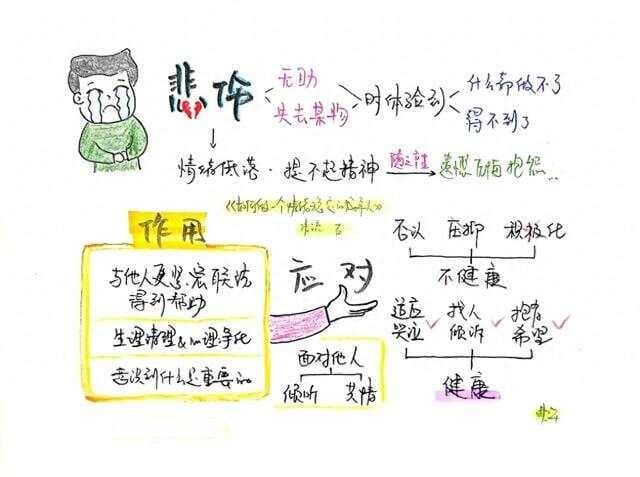 悲伤
无助
失去某物
时体验到
什么都做不了
得不到了
情绪低落·提不起精神
随之产生
遗憾 后悔 抱怨...
作用
与他人更紧密联结
得到帮助
生理清理&心理净化
意识到什么是重要的
应对
面对他人
倾听 共情
否认 压抑 积极化
不健康
适应 找人 抱有
哭泣 倾诉 希望
健康